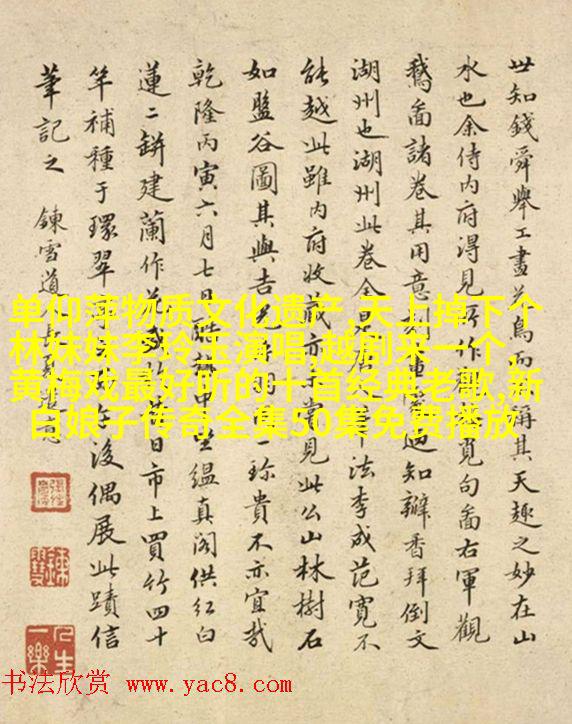 世知錢舜舉工畫花鳥而稱其天趣之妙在山
水也余侍内府得見所作覓句啚右軍觀
鵝啚諸卷其用意過知瓣香拜倒文
湖州也湖州此卷余法李成范寬不
能越此雖内府收藏亦見此公山林樹石
如盤谷圖其與吉光珎貴不亦宜哉
乾隆丙寅六月七日坐緼真阁供红白
蓮二缾建蘭作花盛日市上買竹四十
竿補種于環翠後偶展此蹟信
筆記之 鍊雪道
单仰萍物质文化遗产,天上掉下个
林妹妹李玲玉演唱,越剧来一个,
黄梅戏最好听的十首经典老歌,新
白娘子传奇全集50集免费播放
人生一樂
书法欣赏 www.yac8.com